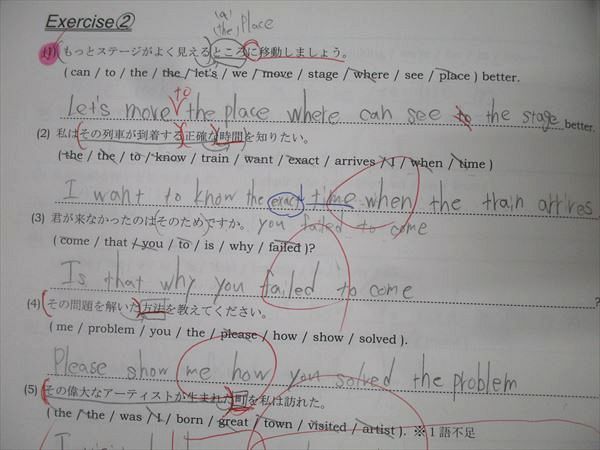 Exercise②
'a' (the) place
(1) もっとステージがよく見えるところに移動しましょう。
( can / to / the / the / let's / we / move / stage / where / see / place ) better.
to
let's move the place where can see to the stage better.
(2) 私はその列車が到着する正確な時間を知りたい。
( the / the / to / know / train / want / exact / arrives / I / when / time )
I want to know the exact time when the train arrives
(3) 君が来なかったのはそのためですか。 you failed to come
( come / that / you / to / is / why / failed )?
Is that why you failed to come ?
(4) その問題を解いた方法を教えてください。
( me / problem / you / the / please / how / show / solved ).
Please show me how you solved the problem
(5) その偉大なアーティストが生まれた町を私は訪れた。
( the / the / was / I / born / great / town / visited / artist ). ※１語不足